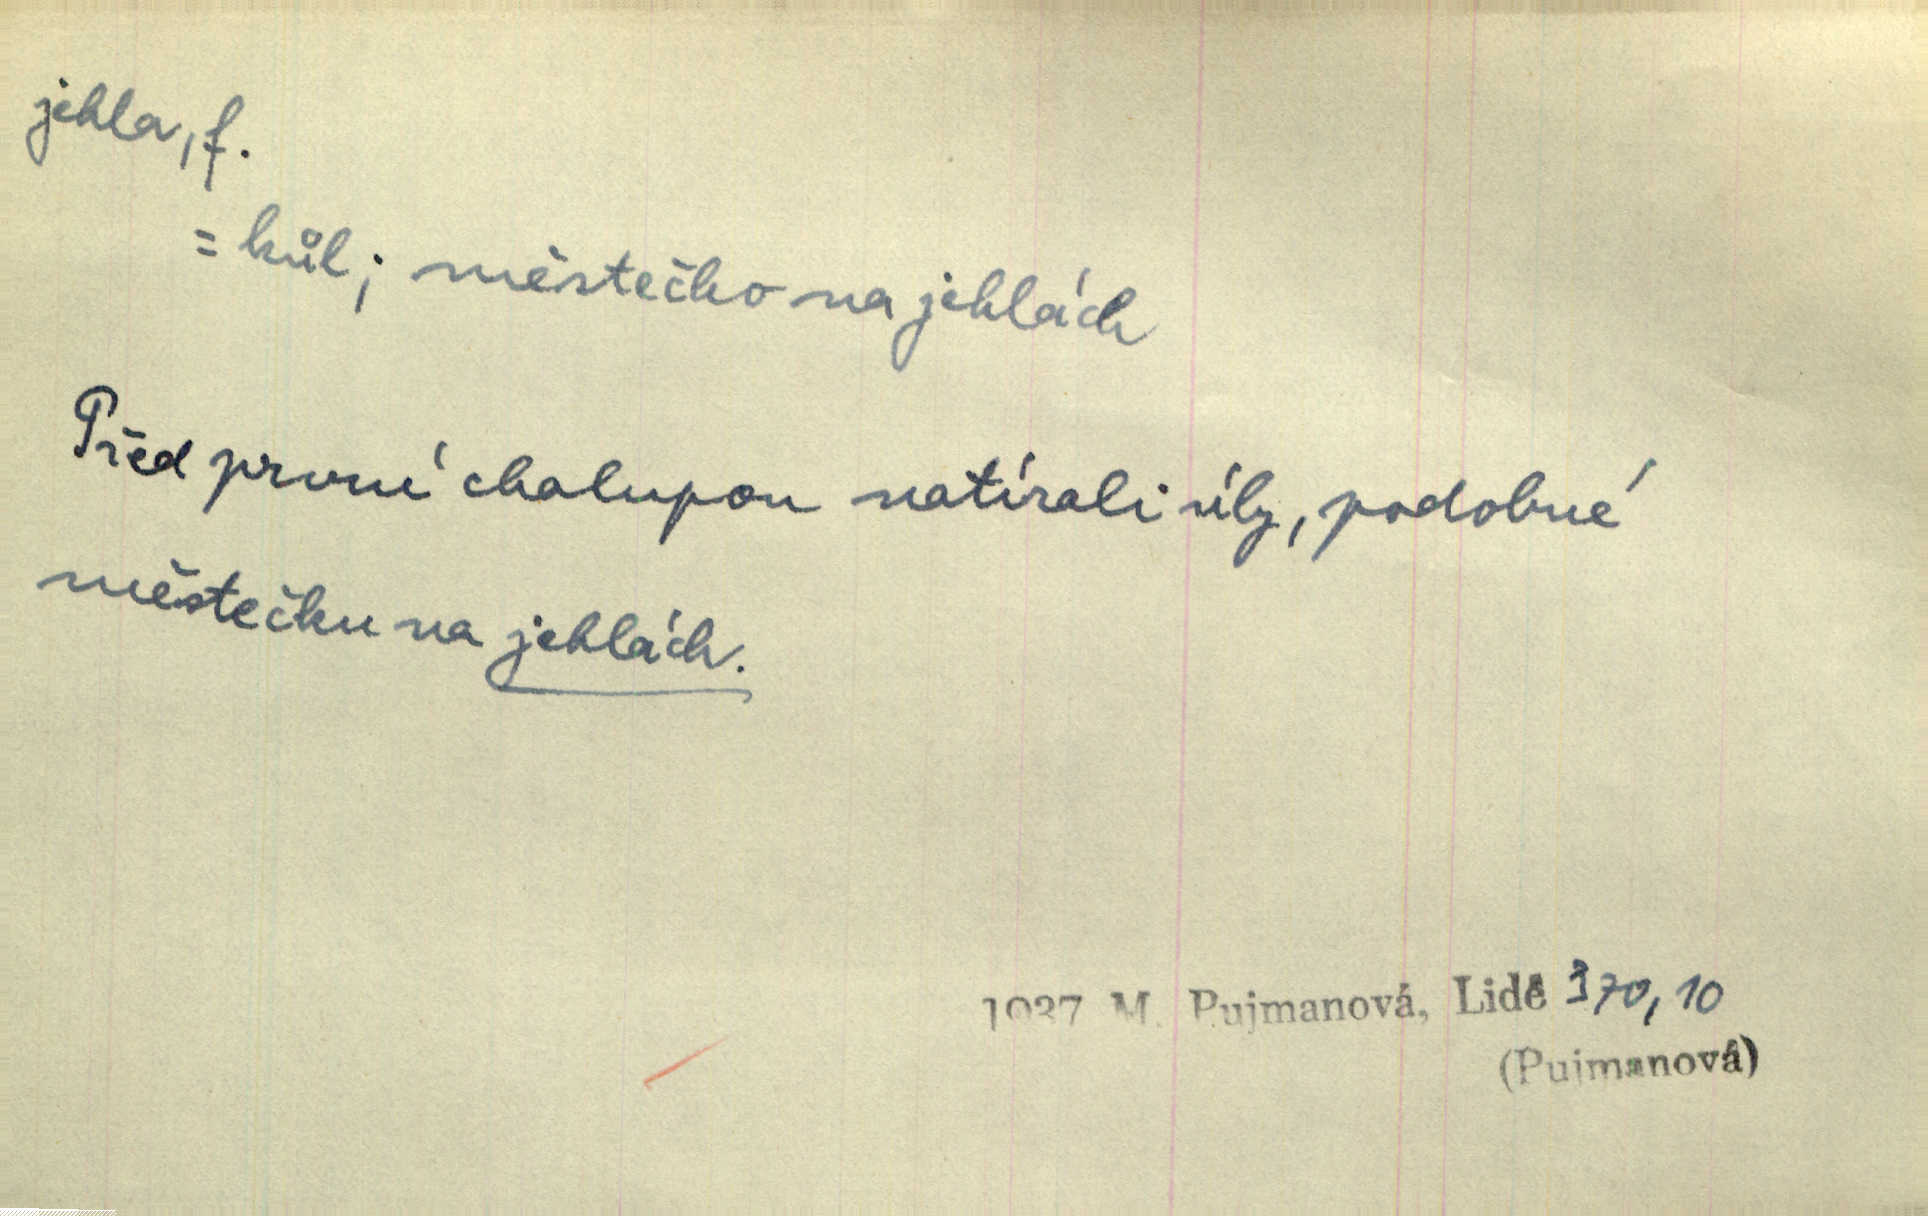 jehla, f.
= kůl; městečko na jehlách
Před první chalupou natírali úly, podobné
městečku na jehlách.
1937 M. Pujmanová, Lidé 370, 10
(Pujmanová)